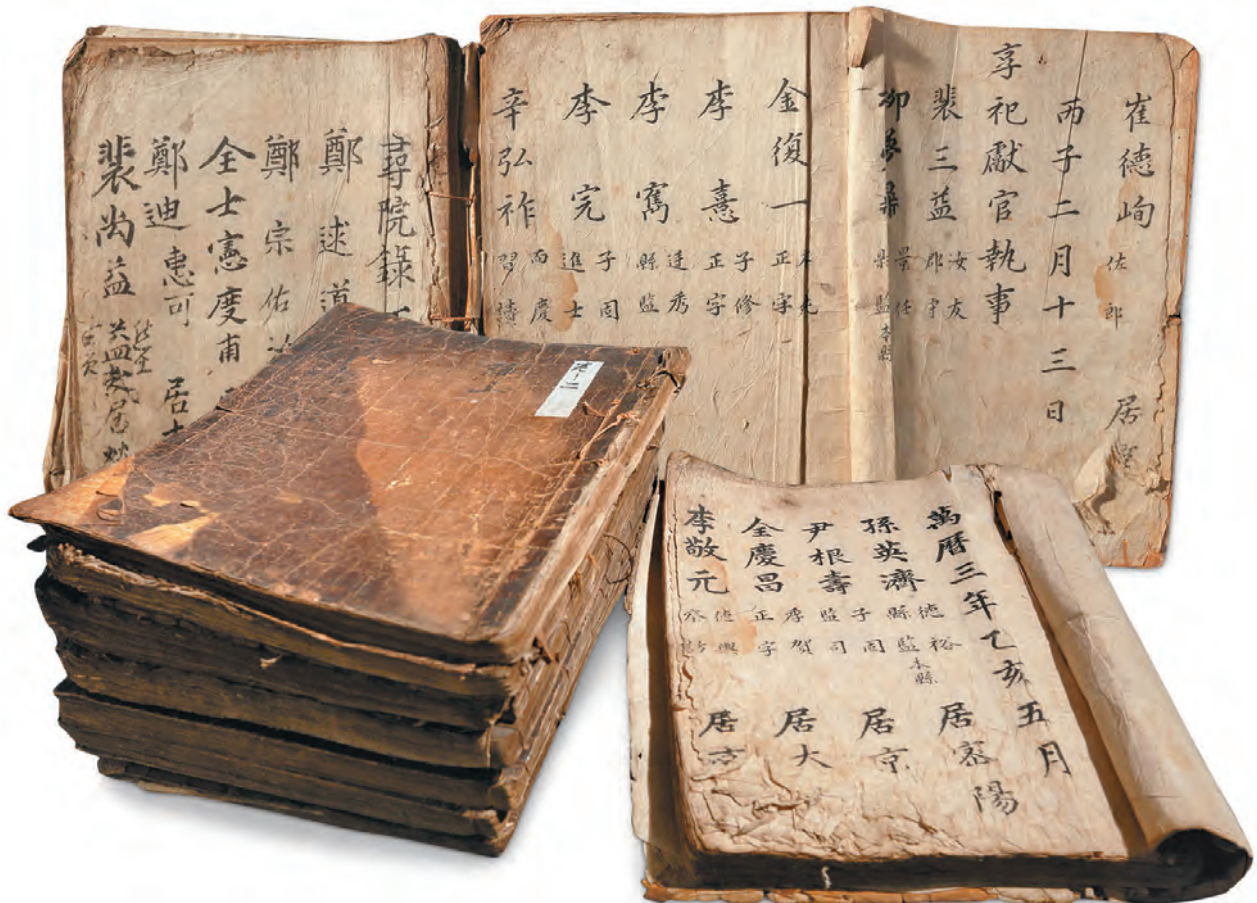 尋院錄
鄭逑道
鄭宗佑
全士憲度甫
鄭迪惠可 居
裴尚益
崔德峋 佐郎 居
丙子二月十三日
享祀獻官執事
裴三益 汝友 郡守
柳夢鼎 景任 縣監本縣
金復一 正字
李憙 子修 正字
李寯 廷秀 縣監
李完 子固 進士
辛弘祚 習讀
萬曆三年乙亥五月
孫英濟 德裕 縣監本縣 居密陽
尹根壽 子固 監司 居京
全慶昌 季賀 正字 居大
李敬元 居京